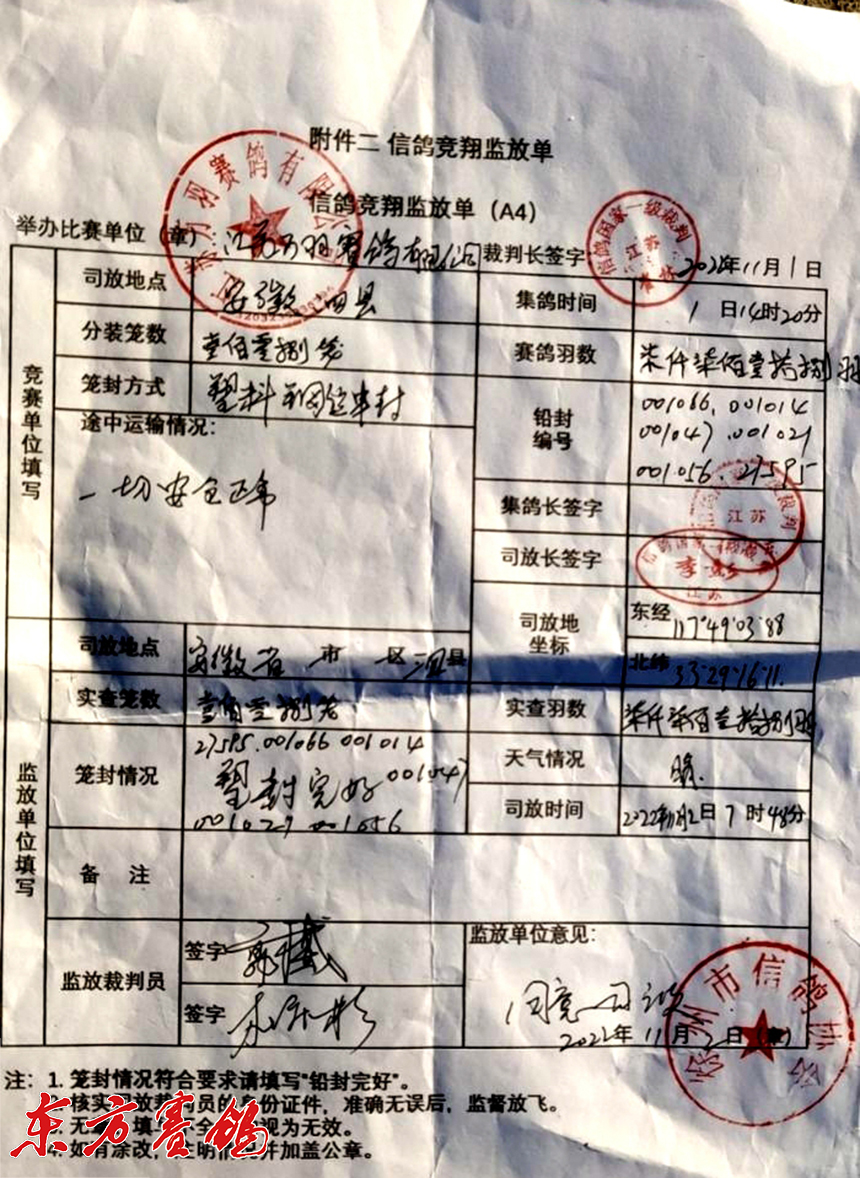 附件二 信鸽竞翔监放单
信鸽竞翔监放单（A4）
举办比赛单位（章）：江苏万羽赛鸽有限公司 裁判长签字 2022年11月1日
信鸽国家一级裁判
江苏
竞赛单位填写
司放地点 安徽泗县 集鸽时间 1日14时20分
分装笼数 壹佰零捌笼 赛鸽羽数 柒仟柒佰壹拾捌羽
笼封方式 塑料 铅封 编号 001066. 001014
001047. 001021
001056. 27595
途中运输情况：
一切安全正常
集鸽长签字
江苏
司放长签字
江苏
司放地坐标 东经 117°49·03·88
北纬 33·29·16·11.
监放单位填写
司放地点 安徽省 市 区 泗县
实查笼数 壹佰零捌笼 实查羽数 柒仟柒佰壹拾捌羽
笼封情况 27595.001066 001014
塑封完好 001047
001021 001056
天气情况 晴.
司放时间 2022年11月2日7时48分
备 注
监放裁判员 签字
签字
监放单位意见：
同意司放
2022年11月2日（章）
徐州市信鸽协会
注：1. 笼封情况符合要求请填写"铅封完好"。
核实司放裁判员的身份证件，准确无误后，监督放飞。
视为无效。
4. 如有涂改，注明情况并加盖公章。
东方赛鸽